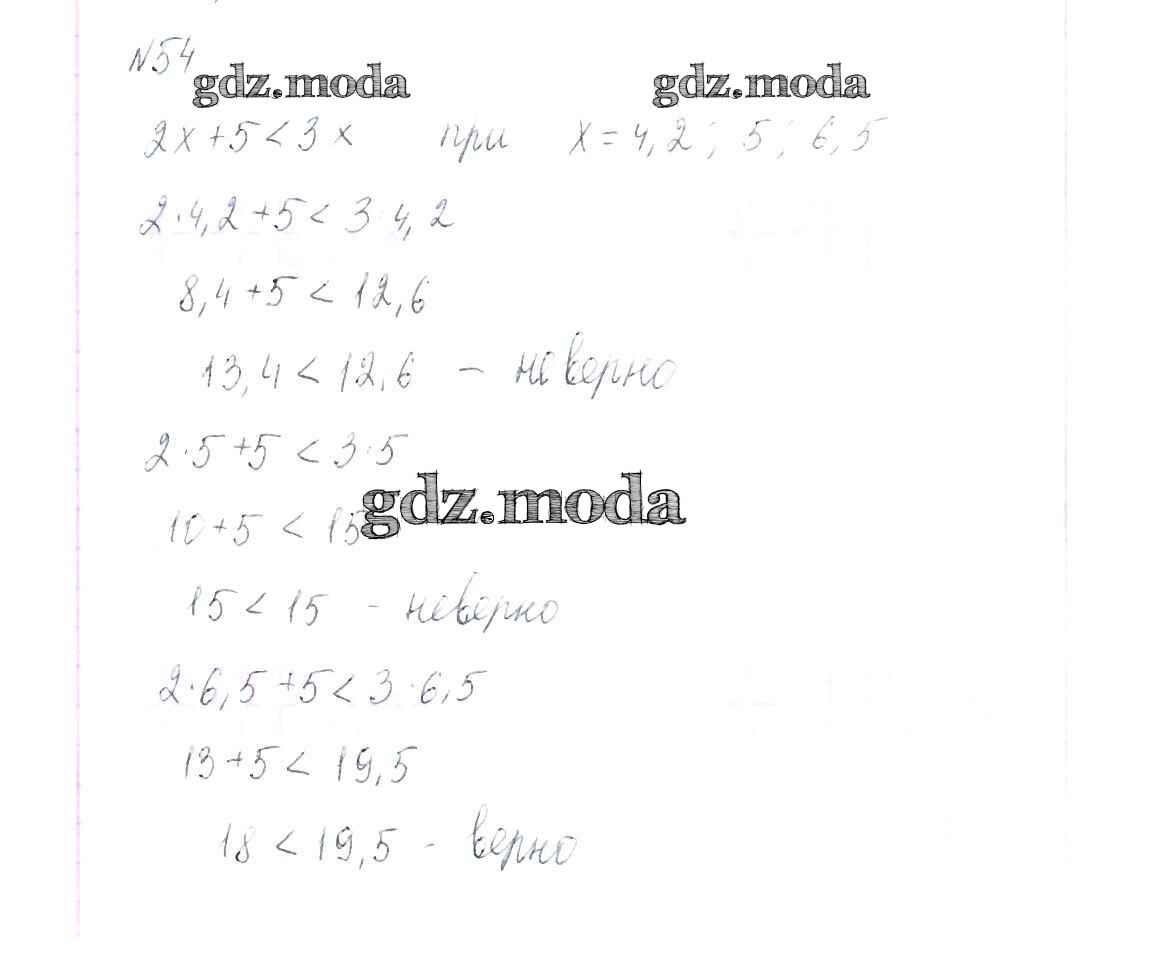 N54
gdz.moda gdz.moda
2x+5<3x при x=4,2; 5; 6,5
2·4,2+5<3·4,2
8,4+5<12,6
13,4<12,6 – неверно
2·5+5<3·5
gdz.moda
10+5<15
15<15 – неверно
2·6,5+5<3·6,5
13+5<19,5
18<19,5 - верно